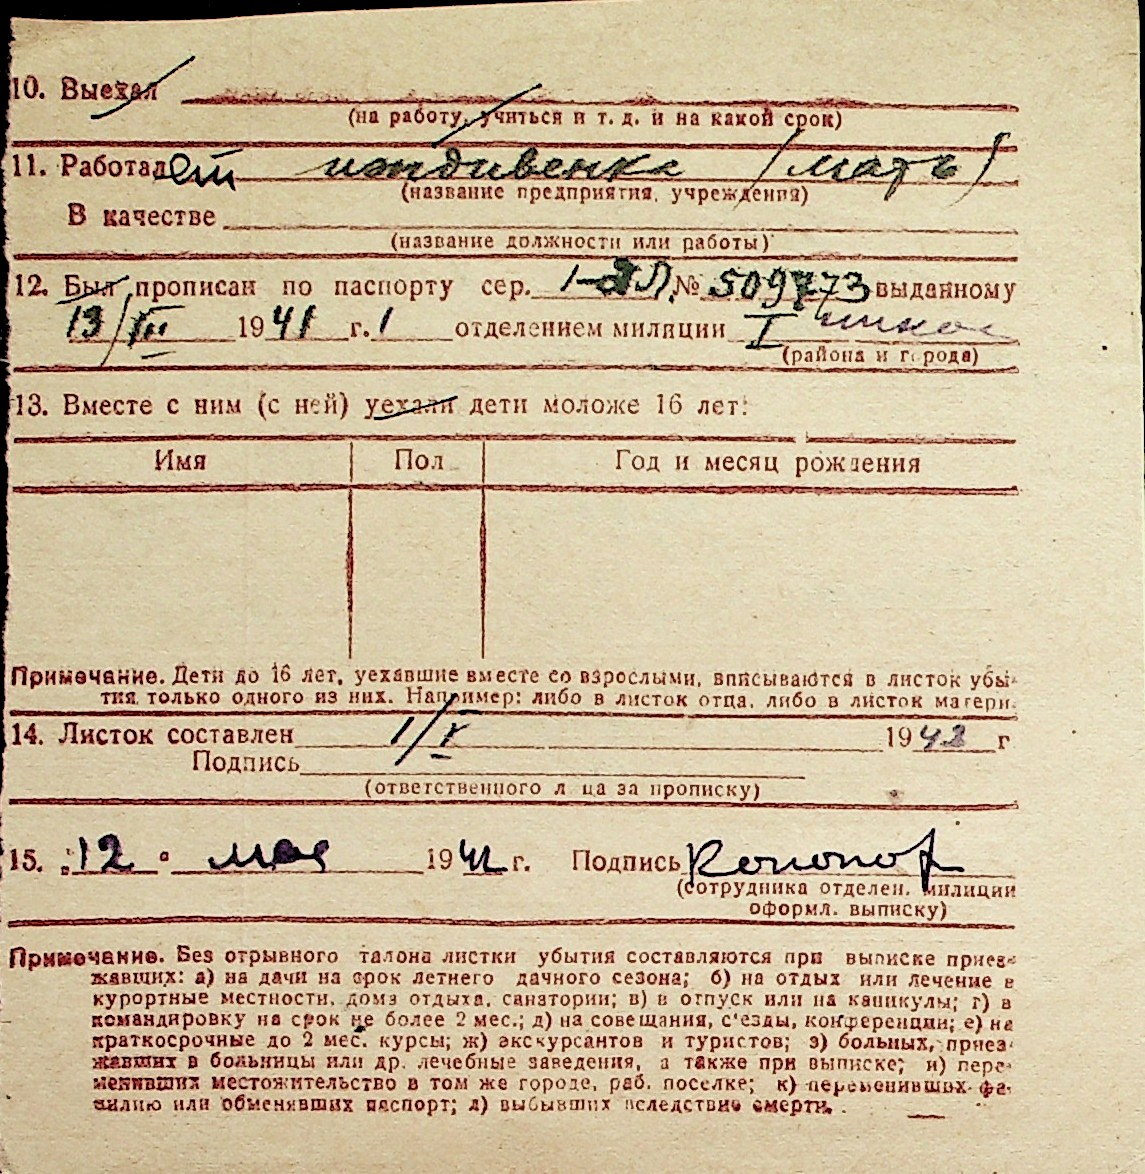 10. Выехал
(на работу, учиться и т. д. и на какой срок)
11. Работает иждивенка /мать/
(название предприятия, учреждения)
В качестве
(название должности или работы)
12. Был прописан по паспорту сер. № 509773 выданному
13/III 1941 г. 1 отделением милиции I
(района и города)
13. Вместе с ним (с ней) уехали дети моложе 16 лет:
Имя Пол Год и месяц рождения
Примечание. Дети до 16 лет, уехавшие вместе со взрослыми, вписываются в листок убы-
тия только одного из них. Например: либо в листок отца, либо в листок матери.
14. Листок составлен 1/V 1942 г
Подпись
(ответственного лица за прописку)
15. "12" мая 1942 г. Подпись
(сотрудника отделен. милиции
оформл. выписку)
Примечание. Без отрывного талона листки убытия составляются при выписке приез-
жавших: а) на дачи на срок летнего дачного сезона; б) на отдых или лечение в
курортные местности, дома отдыха, санатории; в) в отпуск или на каникулы; г) в
командировку на срок не более 2 мес.; д) на совещания, с'езды, конференции; е) на
краткосрочные до 2 мес. курсы; ж) экскурсантов и туристов; з) больных, приез-
жавших в больницы или др. лечебные заведения, а также при выписке; и) пере-
менивших местожительство в том же городе, раб. поселке; к) переменивших фа-
милию или обменявших паспорт; л) выбывших вследствие смерти.